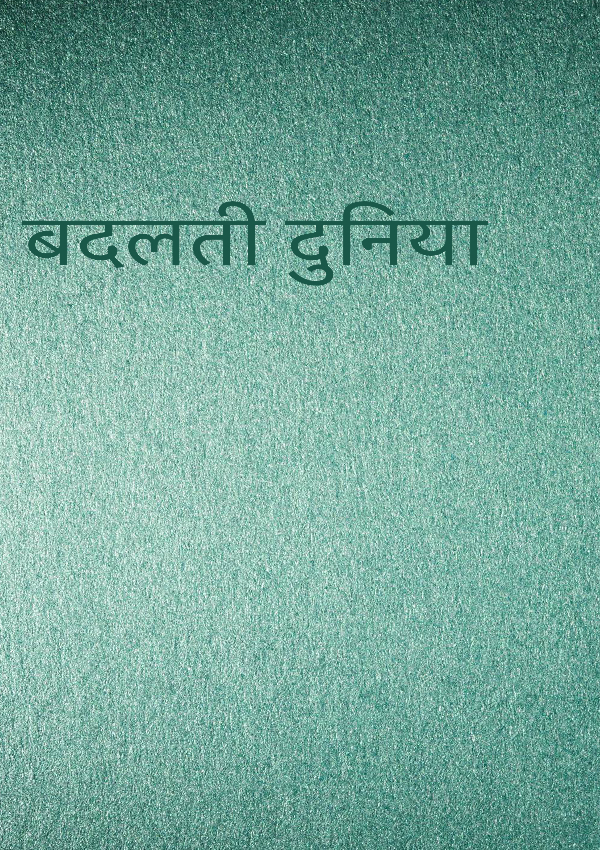 बदलती दुनिया